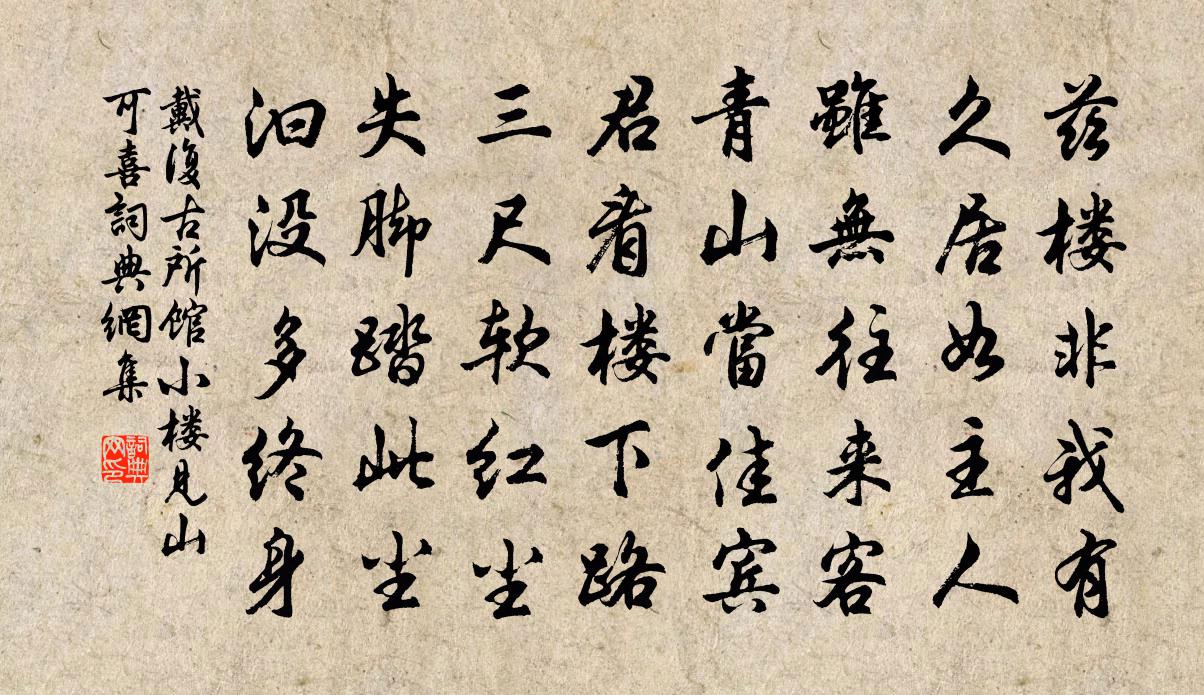 兹楼非我有
久居如主人
雖無往来客
青山當佳宾
君看楼下路
三尺软红尘
失脚踏此尘
汩没多终身
戴復古所馆小楼見山
可喜詞典網集
詞典网印